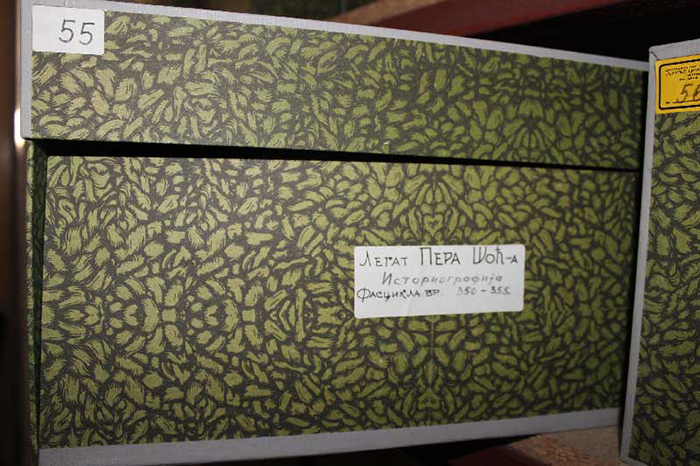 55
Легат Пера Шоћ-а
Историографија
Фасцикла бр. 350-355
56